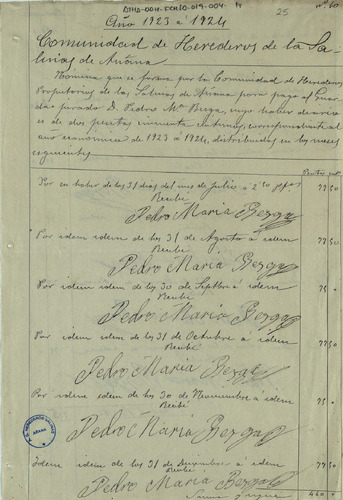 ATHA-004-FCH10-019-004-
25
nº 10
Año 1923 á 1924
Comunidad de Herederos de la Sa-
linas de Añana
Nómina que se forma por la Comunidad de Herederos
Propietarios de las Salinas de Añana para pago al Guar-
da jurado D. Pedro Mª Berga, cuyo haber de
es de dos pesetas cincuenta céntimos, correspondiente al
año económico de 1923 á 1924, distribuidas en los meses
siguientes
Pesetas cnt.
Por su haber de los 31 días del mes de Julio á 2'50 ptas 77 50
Recibí
Pedro María Berga
Por idem idem de los 31 de Agosto á idem 77 50
Recibí
Pedro María Berga
Por idem idem de los 30 de Septbre á idem 75 "
Recibí
Pedro María Berga
Por idem idem de los 31 de Octubre á idem 77 50
Recibí
Pedro María Berga
Por idem idem de los 30 de Noviembre á idem 75 "
Recibí
Pedro María Berga
Idem idem de los 31 de Diciembre á idem 77 50
Recibí
Pedro María Berga
Suma y sigue 460 "